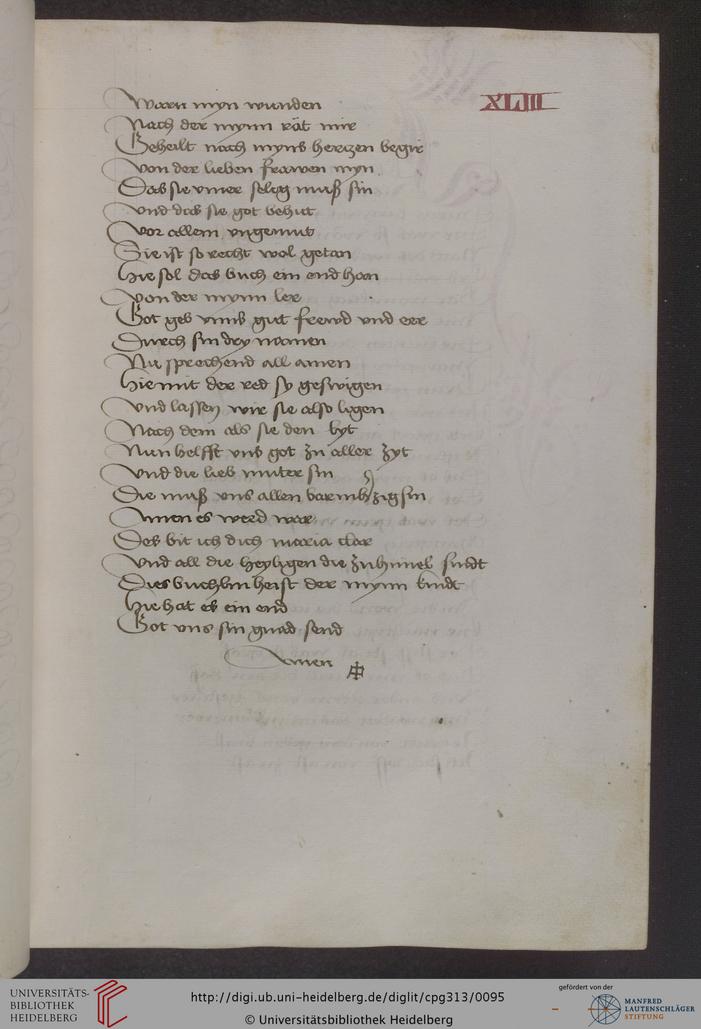 XLIII
Warn myn wunden
Nach der mynn rät mir
Geheilt nach myns hertzen begir
Von der lieben frawen myn
Das sie ymer selig muß sin
Vnd das sie got behut
Vor allem vngemut
Sie ist so recht wol getan
Hie sol das buch ein end han
Von der mynn ler
Got geb vnns gut frewd vnd eer
Durch sin dry namen
Nu sprechend all amen
Hie mit der red sy geswigen
Vnd lassen wir sie also ligen
Nach dem als sie den byt
Nun helfft vns got zu aller zyt
Vnd die lieb muter sin
Die muß vns allen barmhzig sin
Amen es werd war
Des bit ich dich maria clar
Vnd all die heyligen die zu himel sindt
Dies buchlin heist der mynn kindt
Hie hat es ein end
Got vns sin gnad send
Amen
UNIVERSITÄTS-
BIBLIOTHEK
HEIDELBERG
http://digi.ub.uni-heidelberg.de/diglit/cpg313/0095
© Universitätsbibliothek Heidelberg
gefördert von der
MANFRED
LAUTENSCHLÄGER
STIFTUNG